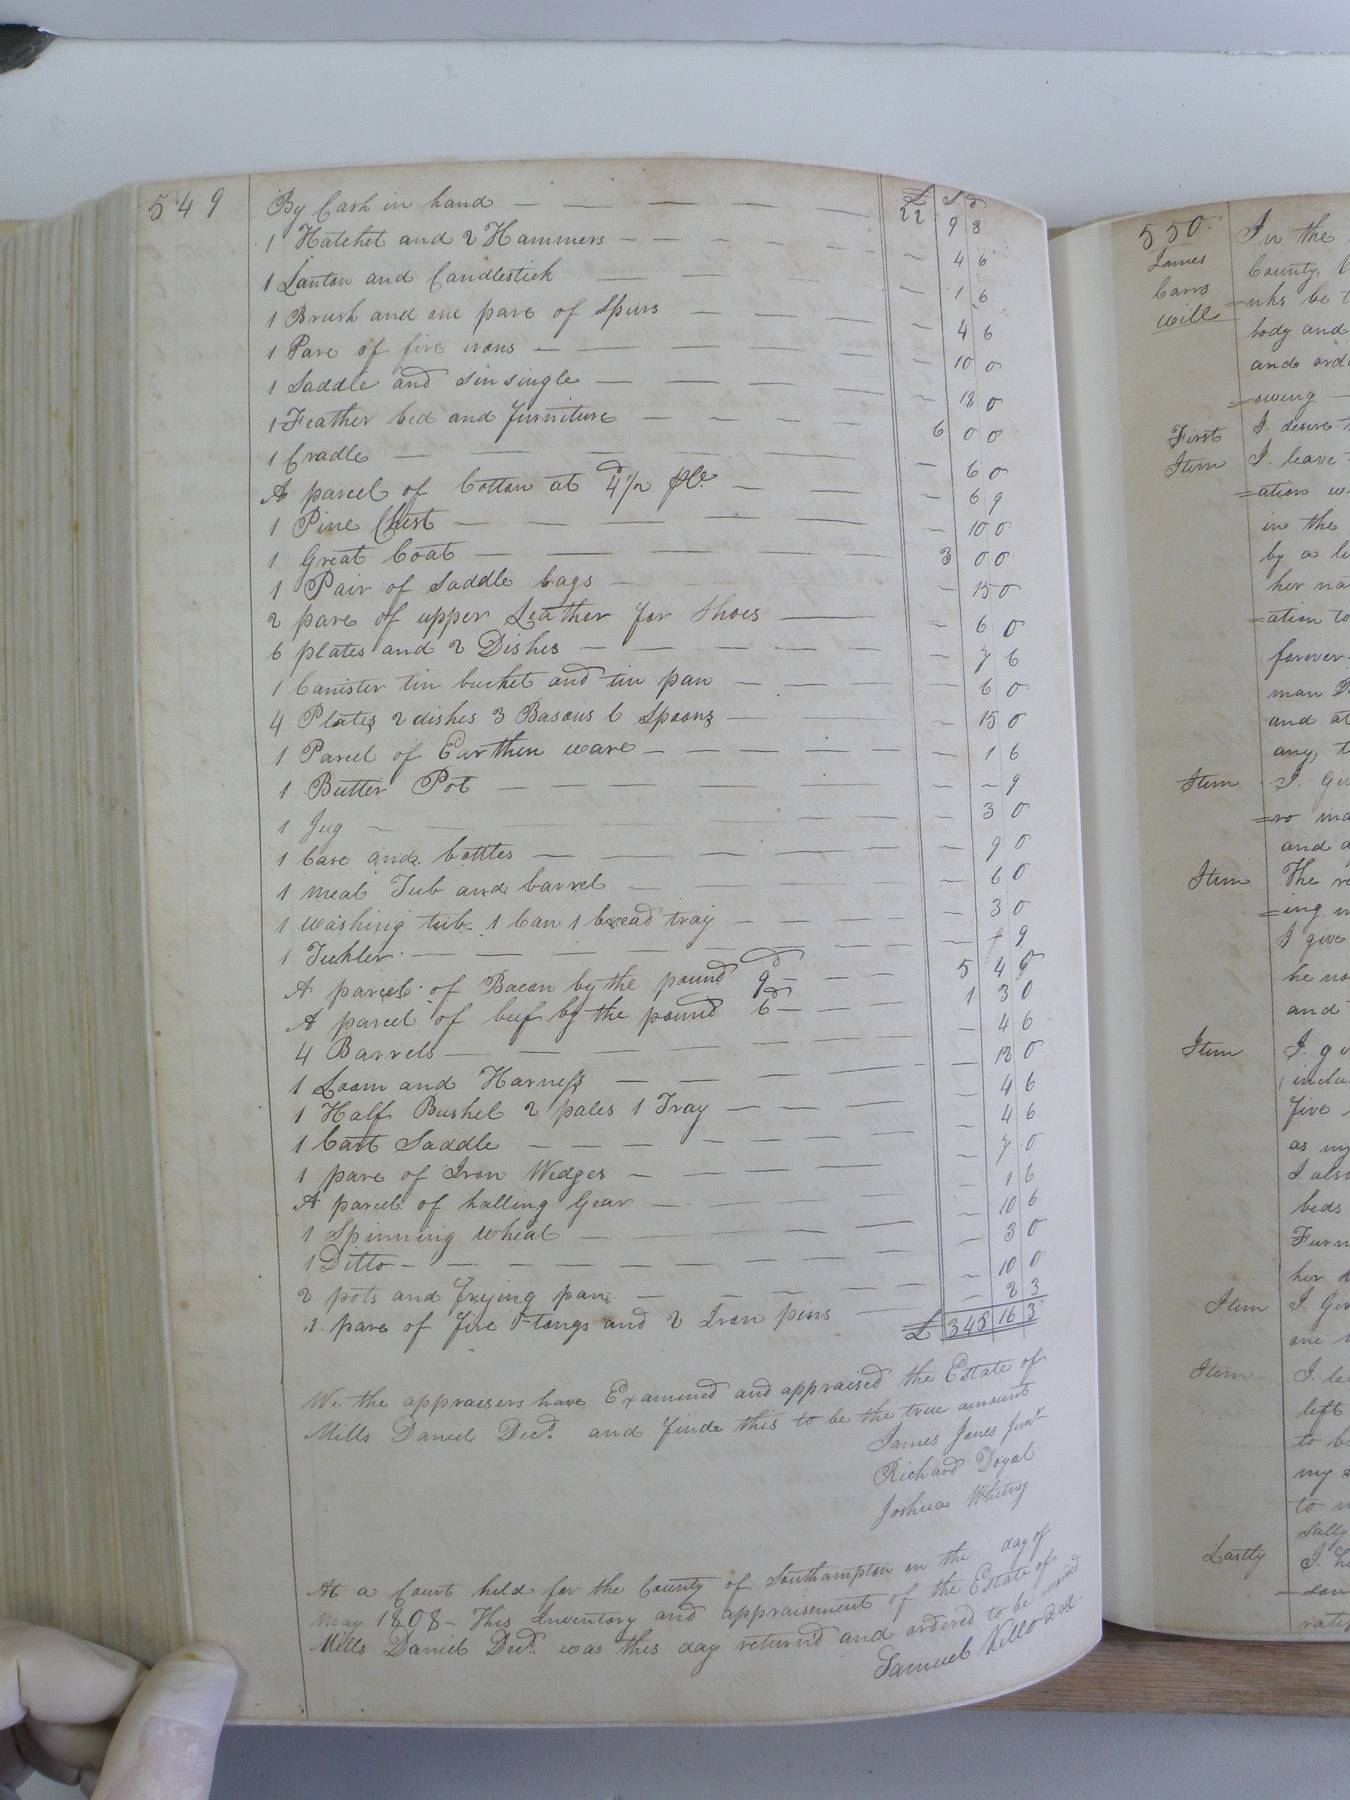 549
£ S D
By Cash in hand — — — — — 22 9 8
1 Hatchet and 2 Hammers — — — — — 4 6
1 Lanton and Candlestick — — — — 1 6
1 Brush and one pare of Spurs — — — — 4 6
1 Pare of fire irons — — — — — 10 0
1 Saddle and sinsingle — — — — — 18 0
1 Feather bed and furniture — — — — 6 0 0
1 Cradle — — — — — 6 0
A parcel of Cotton at 4 1/2 d — — — 6 9
1 Pine Chest — — — — — 10 0
1 Great Coat — — — — — 3 0 0
1 Pair of Saddle bags — — — — 15 0
2 pare of upper Leather for Shoes — — 6 0
6 plates and 2 Dishes — — — — — 7 6
1 Canister tin bucket and tin pan — — — — 6 0
4 Plates 2 dishes 3 Basons 6 Spoons — — — — 15 0
1 Parcel of Earthen ware — — — — — 1 6
1 Butter Pot — — — — — — 9
1 Jug — — — — — 3 0
1 Case and bottles — — — — — 9 0
1 meal Tub and barrel — — — — 6 0
1 washing tub 1 Can 1 bread tray — — — — 3 0
1 — — — — — 9
A parcel of Bacon by the pound 9d — — — 5 4 9
A parcel of beef by the pound 6d — — 1 3 0
4 Barrels — — — — — 4 6
1 Loom and Harness — — — — — 12 0
1 Half Bushel 2 pales 1 Tray — — — — 4 6
1 Cart Saddle — — — — — 4 6
1 pare of Iron Wedges — — — — — 7 0
A parcel of halling Gear — — — — 1 6
1 Spinning wheal — — — — — 10 6
1 Ditto — — — — — 3 0
2 pots and frying pan — — — — — 10 0
1 pare of fire tongs and 2 Iron pins — — 2 3
£ 345 16 3
We the appraisers have Examined and appraised the Estate of
Mills Daniel Decd. and finde this to be the true amount
James Jones Junr
Richard Doyal
Joshua Whitney
At a Court held for the County of Southampton on the day of
May 1808 — This Inventory and appraisement of the Estate of
Mills Daniel Decd. was this day returnd and ordered to be recorded
Samuel Kello
550
James
Carrs
will
In the
County,
=nks be
body and
and ord
=owing —
First I desire
Item I leave
=ation
in the
by a
her
=ation to
forever
man
and at
any,
Item I Giv
and
Item The
=ing
I give
he
and
Item I gi
five
as my
I als
beds
her
Item I Giv
one
Item I le
left
to
my
to
Sally
Lastly I